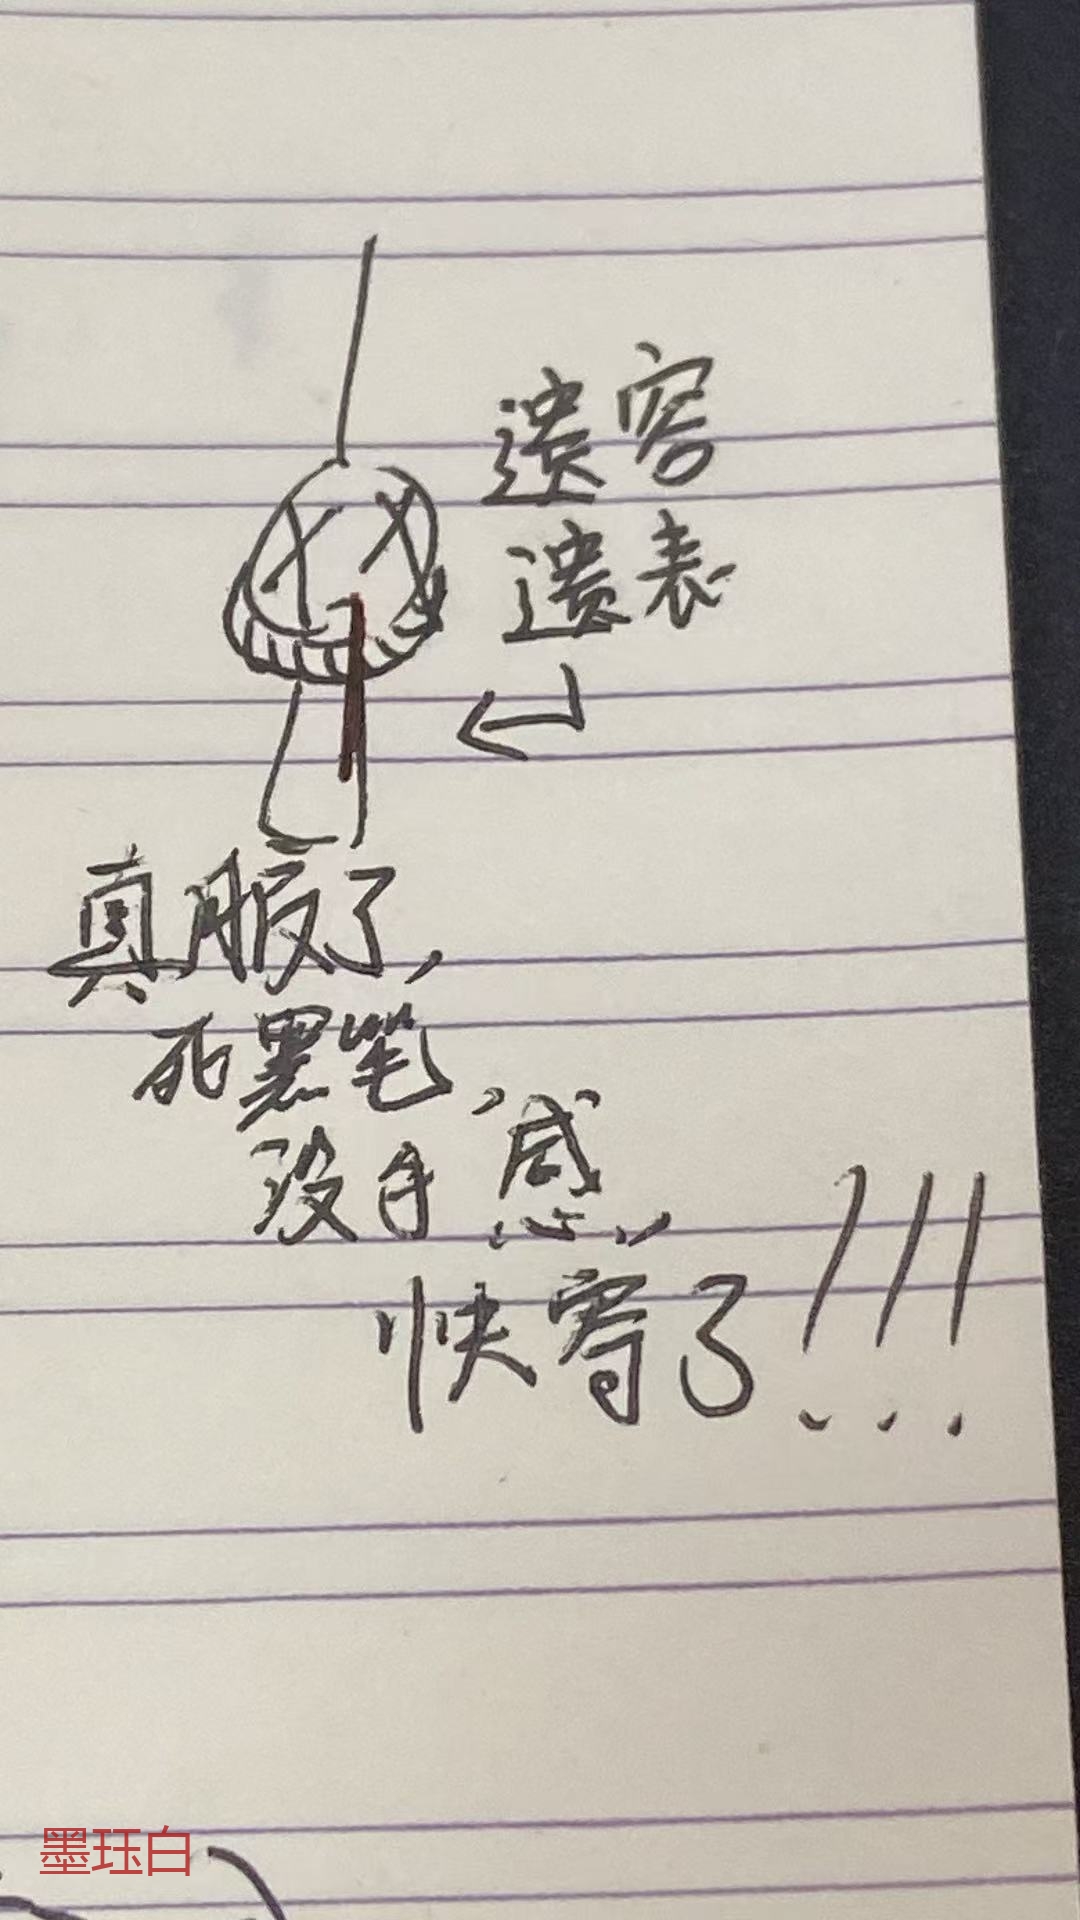 遗容
遗表
真服了,
死黑笔,
没手感,
快寄了!!!
墨珏白